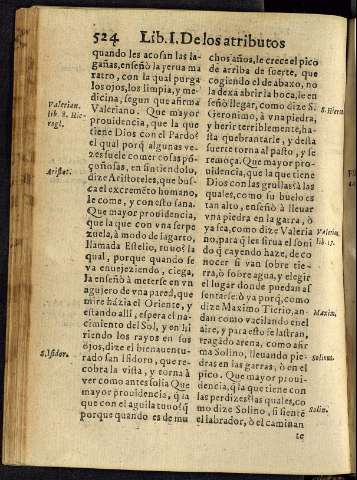 524 Lib. I. De los atributos
quando les acosan las la-
gañas, enseñò la yerua ma
ratro, con la qual purga
los ojos, los limpia, y me-
dicina, segun que afirma
Valeriano. Que mayor
prouidencia, que la que
tiene Dios con el Pardo?
el qual porq̃ algunas ve-
zes suele comer cosas põ-
çoñosas, en sintiendolo,
dize Aristoteles, que bus-
ca el excremẽto humano,
le come, y con esto sana.
Que mayor prouidencia,
que la que con vna serpe
zuela, à modo de lagarto,
llamada Estelio, tuuo? la
qual, porque quando se
va enuejeziendo, ciega,
la enseñò à meterse en vn
agujero de vna pared, que
mire hàzia el Oriente, y
estando alli, espera el na-
cimiento del Sol, y en hi
riendo los rayos en sus
ojos, dize el bienauentu-
rado san Isidoro, que re-
cobra la vista, y torna à
ver como antes solia Que
mayor prouidencia, q̃ la
que con el aguila tuuo? q̃
porque quando es de mu
Valerian.
lib. 8. Hie-
rogl.
Aristot.
S. Isidor.
chos años, le crece el pico
de arriba de suerte, que
cogiendo el de abaxo, no
la dexa abrir la boca, le en
señò llegar, como dize S.
Geronimo, à vna piedra,
y herir terriblemente, has-
ta quebrantarle, y desta
suerte torna al pasto, y se
remoça. Que mayor pro-
uidencia, que la que tiene
Dios con las grullas? à las
quales, como su buelo es
tan alto, enseñò à lleuar
vna piedra en la garra, ò
ya sea, como dize Valeria
no, para q̃ les sirua el soni
do q̃ cayendo haze, de co
nocer si van sobre tie-
rra, ò sobre agua, y elegir
el lugar donde puedan as-
sentarse: ò ya porq̃, como
dize Maximo Tierio, an-
dan como vacilando en el
aire, y para esto se lastran,
tragãdo arena, como afir
ma Solino, lleuando pie-
dras en las garras, ò en el
pico. Que mayor proui-
dencia, q̃ la que tiene con
las perdizes? las quales, co
mo dize Solino, si sientẽ
el labrador, ò el caminan
te
S. Hiero.
Valeria.
lib. 17.
Maxim.
Solinus.
Solin.